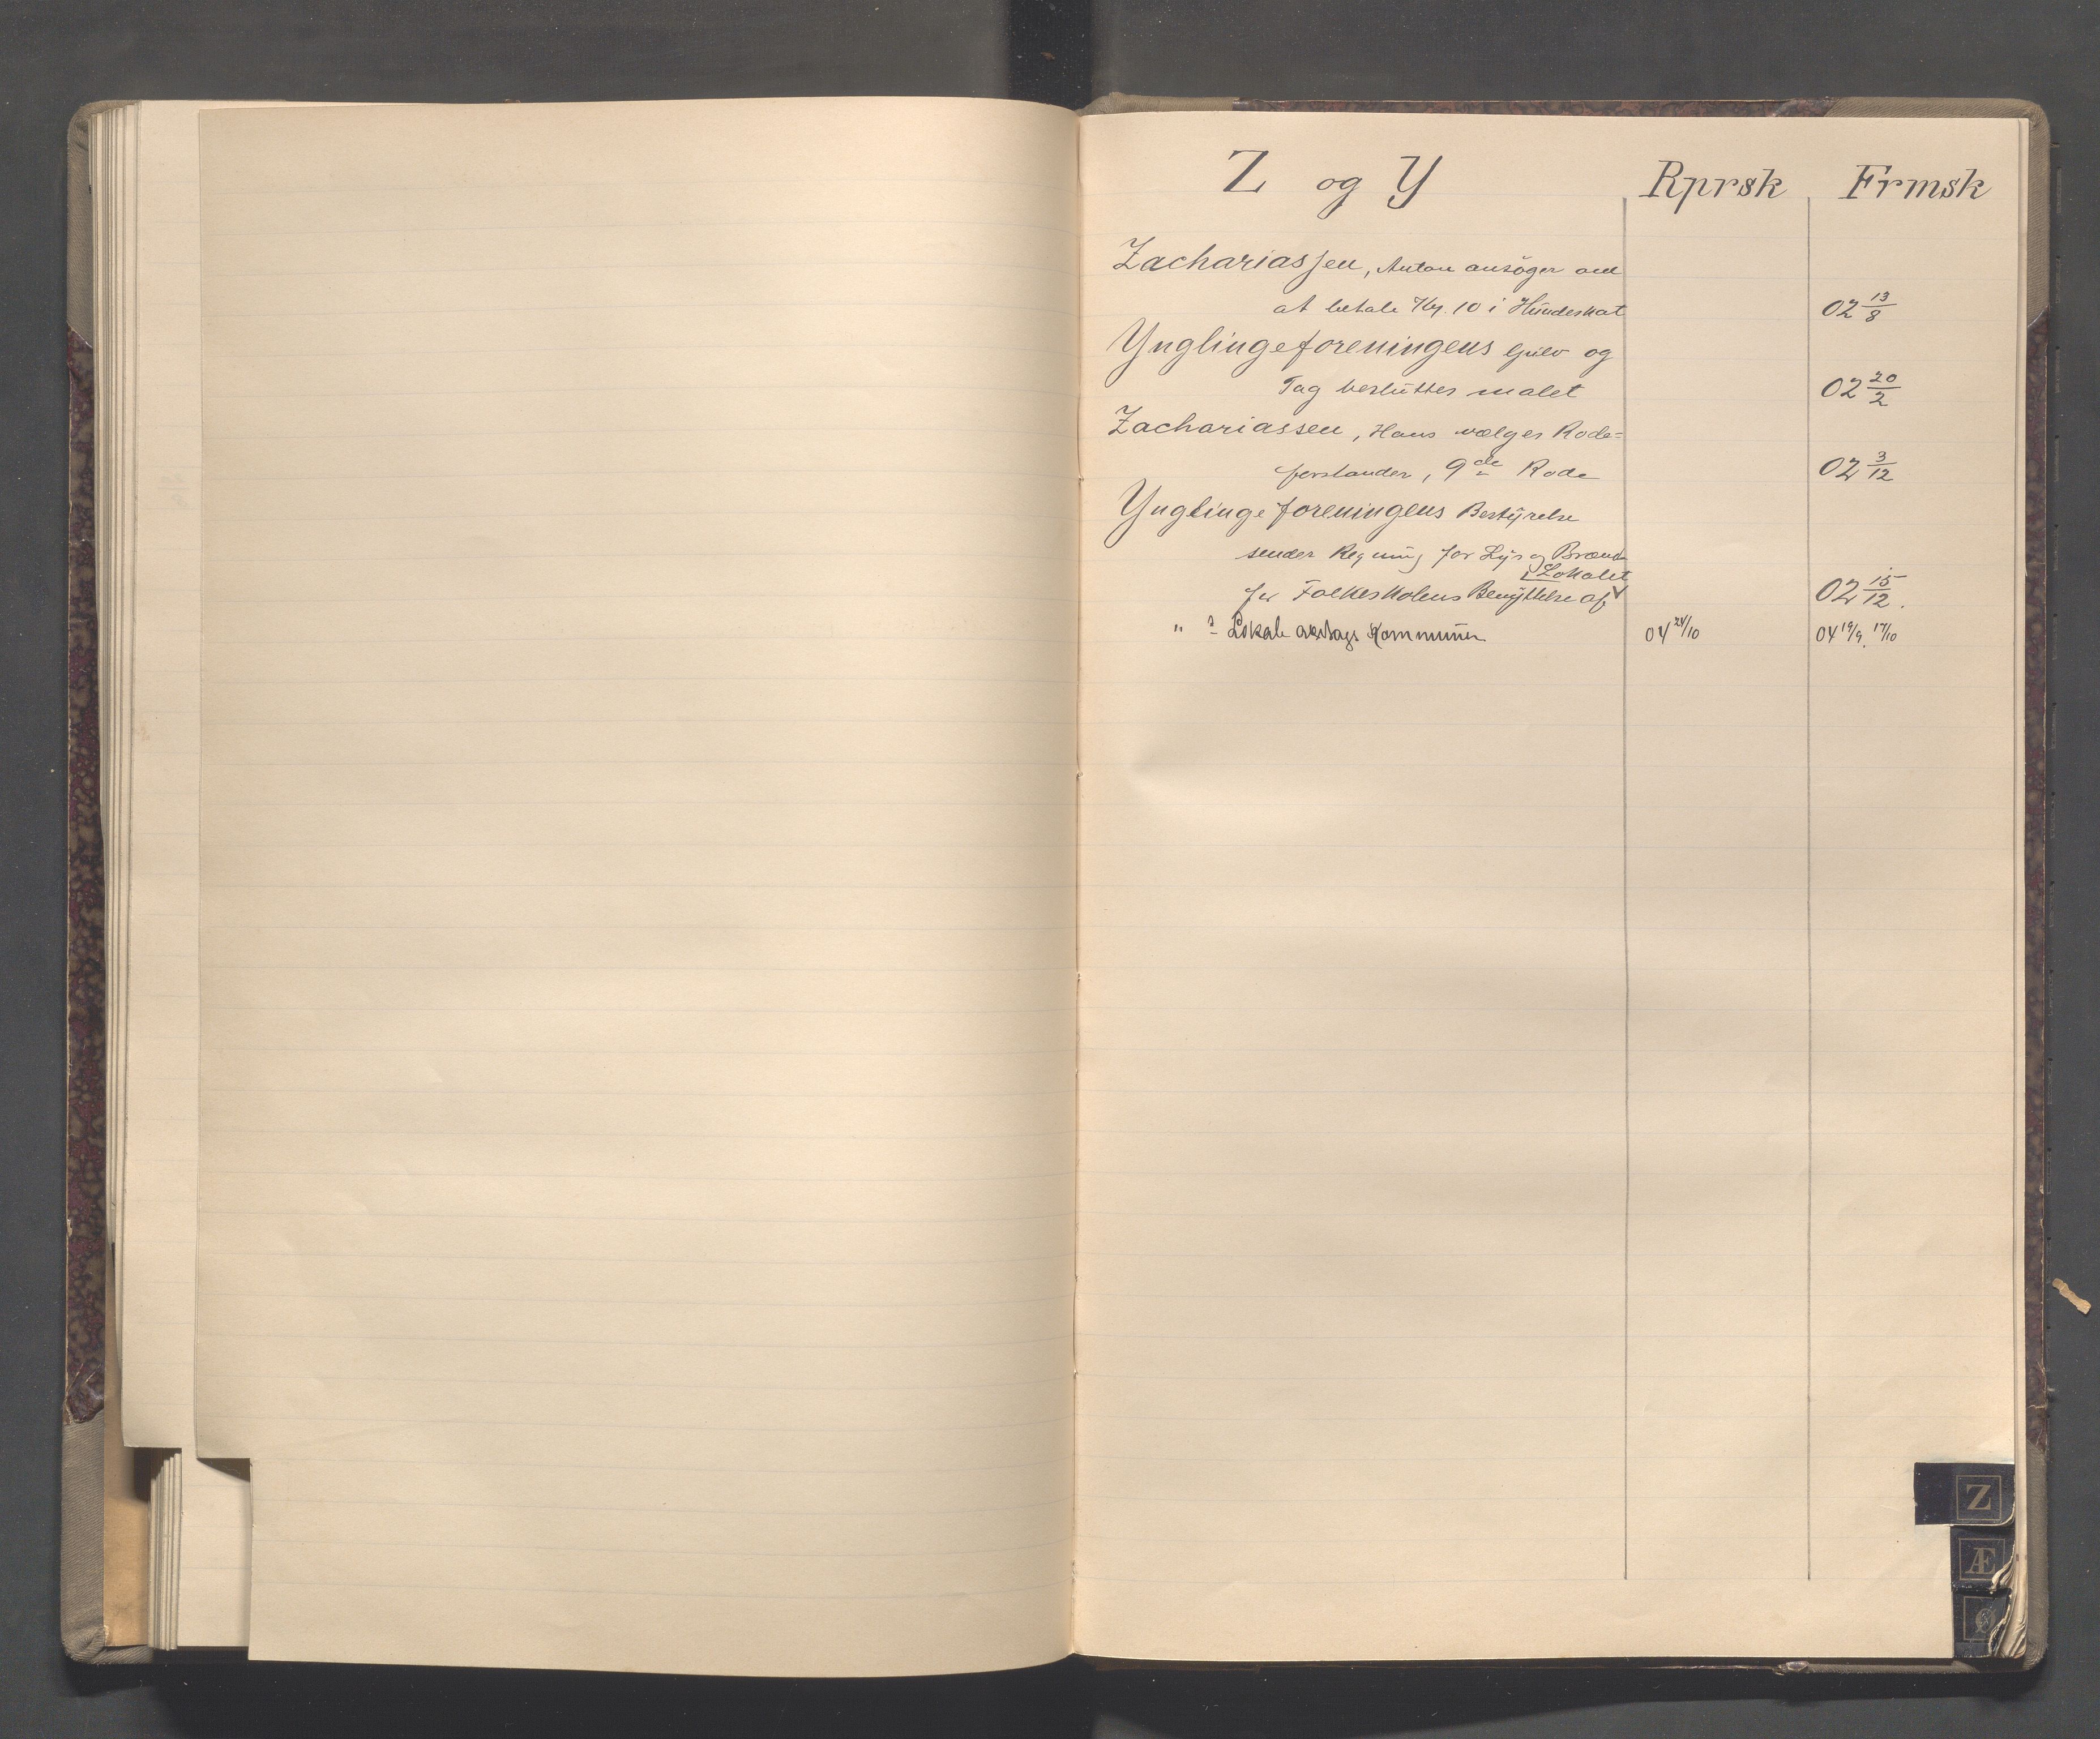 Z og Y Rprsk Frmsk
Zachariassen, Anton ansøger om
at betale Kr. 10 i Hundeskat 02 13/8
Ynglingeforeningens Gulv og
Tag besluttes malet 02 20/2
Zachariassen, Hans vælges Rode=
forstander, 9de Rode 02 3/12
Ynglingeforeningens Bestyrelse
sender Regning for Lys og Brænde
for Folkeskolens Benyttelse af Lokalet 02 15/12.
" s Lokale Kommunen 04 24/10 04 19/9. 17/10
Z
Æ
Ø